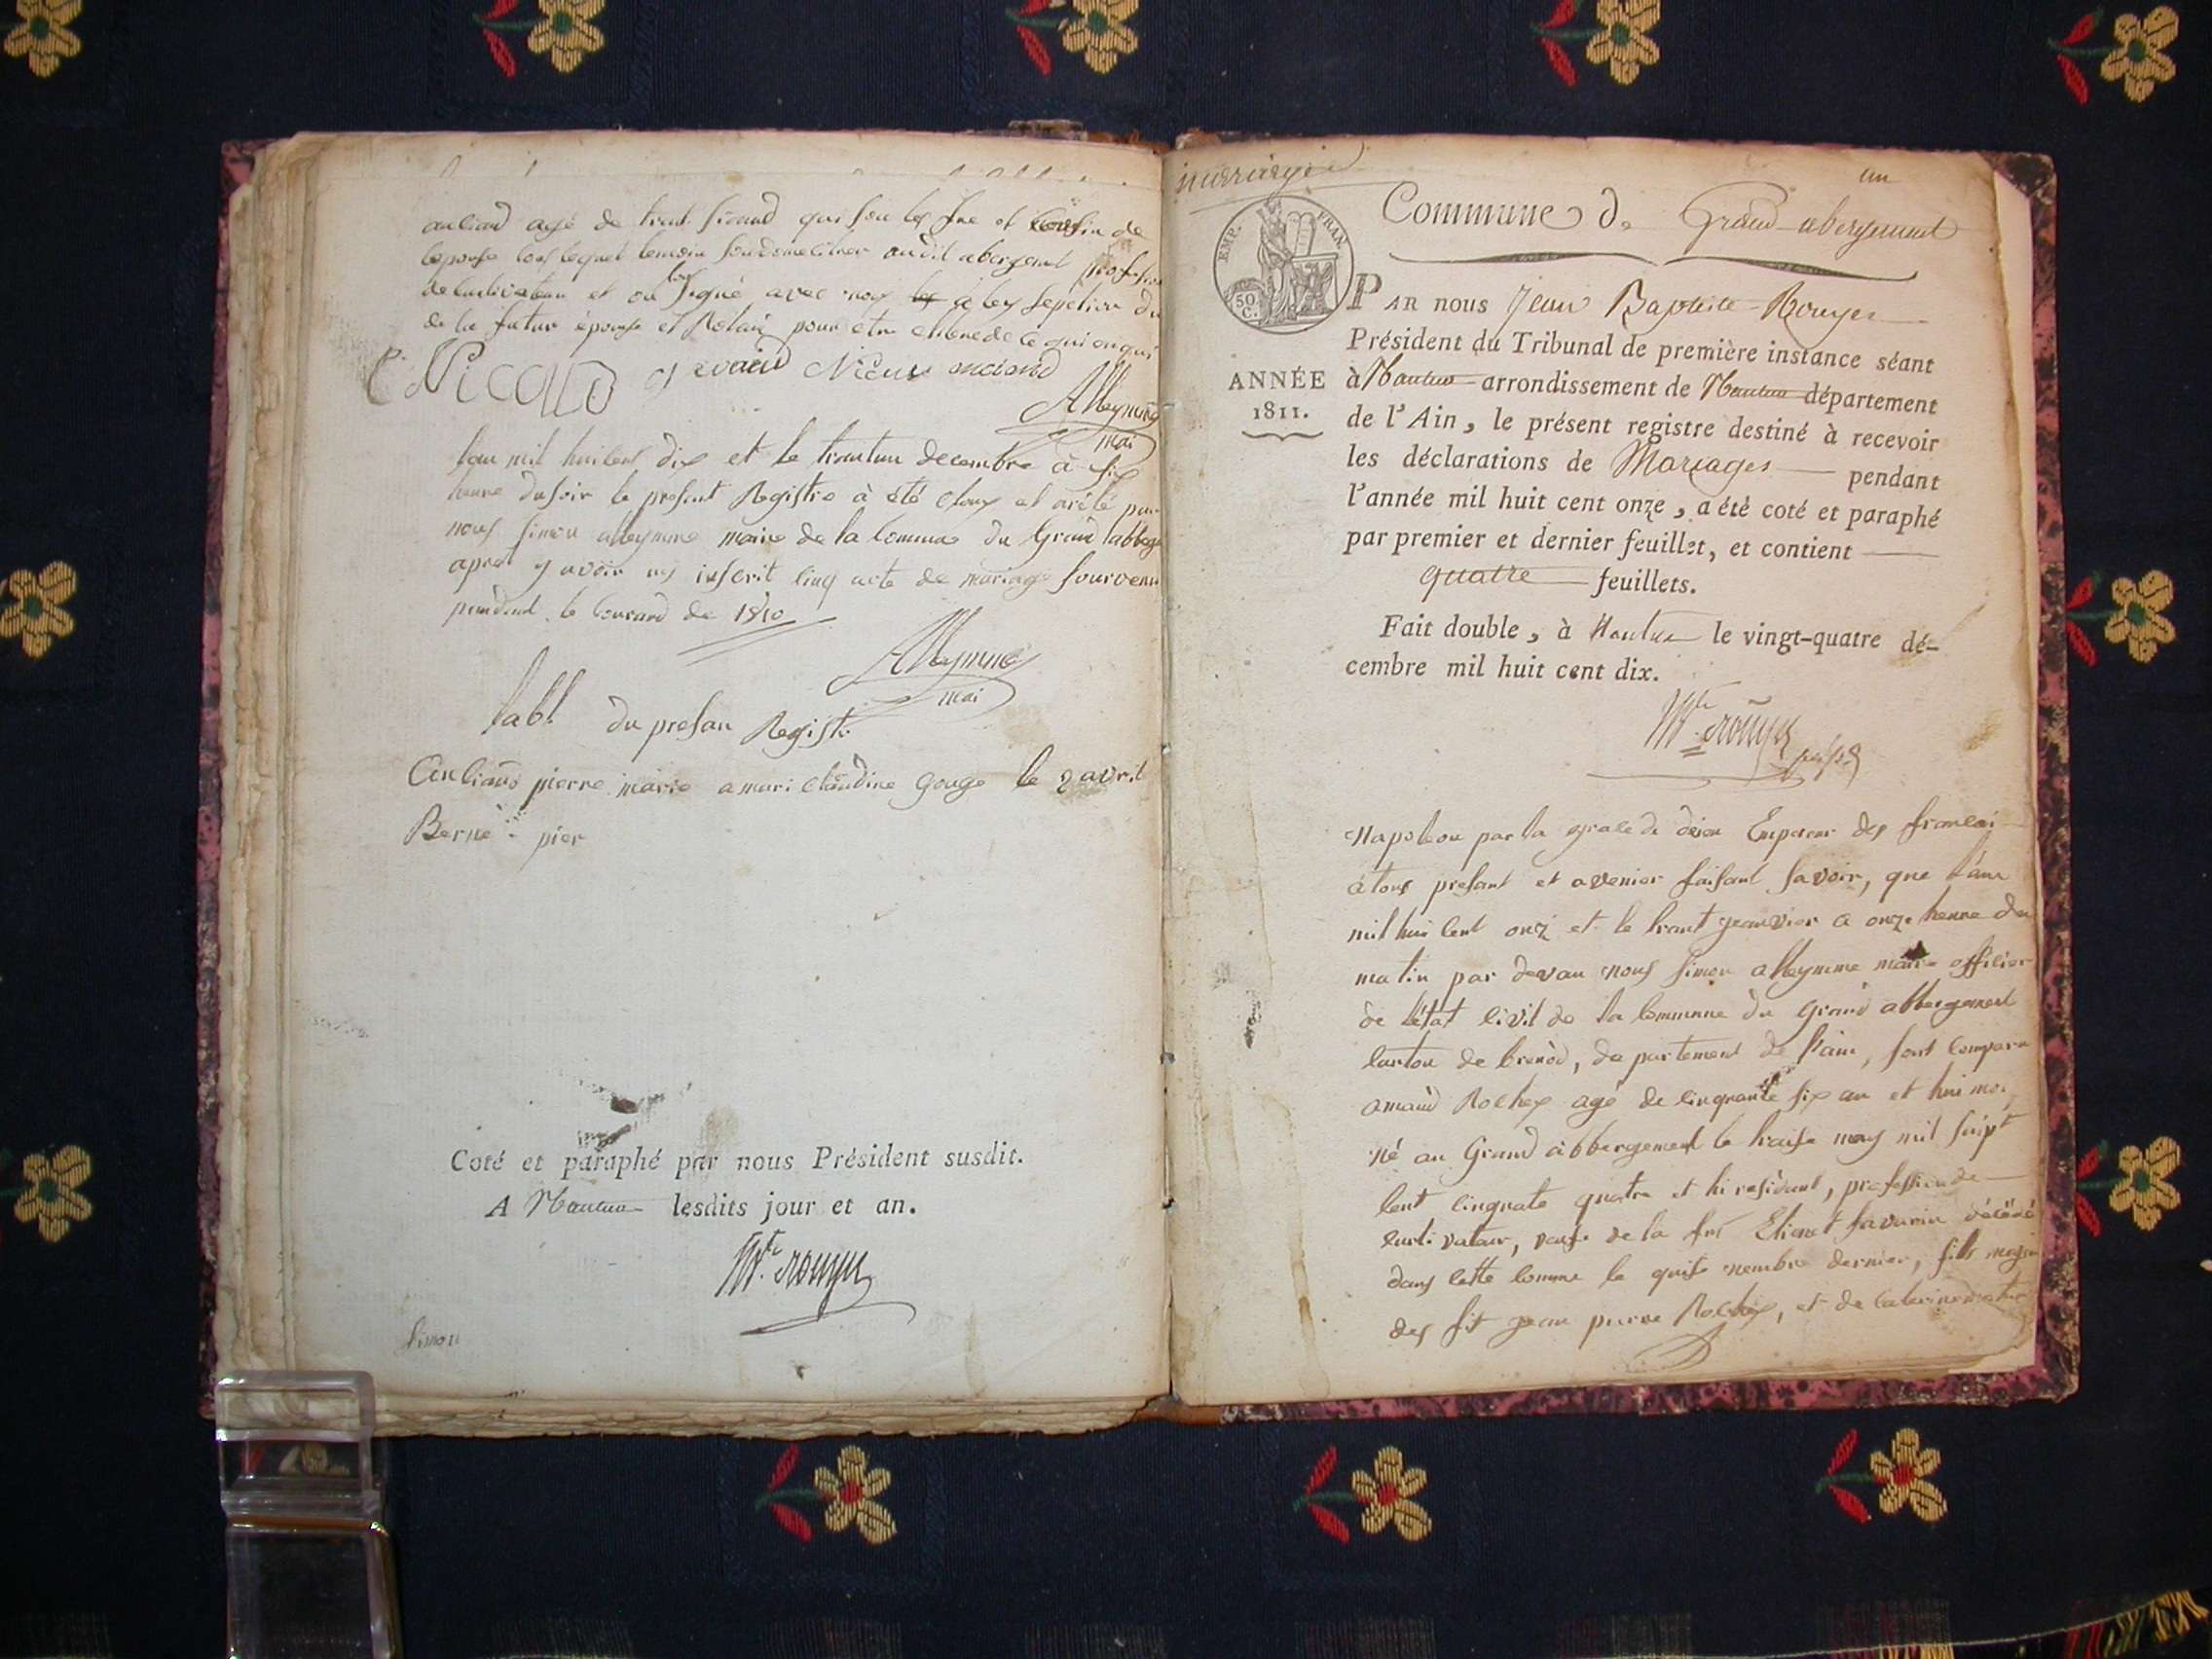 anliand agé de trent qui son les fre et cousin de
lepouse tous lequel temoin audit abergement profession
de cultivateur et on signé avec nous
de la futur épouse et pour etre de ce
Nicolld
Alleymme
mai
lan mil huilent dix et le trantun decembre à six
heure dusoir le presant Registre à été clou et arêté par
nous simon alleymme maire de la Commune du Grand
apres y avoir inscrit cinq acte de mariage sourvenu
pendent le courand de 1810
Alleymme
mai
tabl du presan Registr
Anliand pierre marie a mari claudine gouge le 2 avril
Berne pier
Coté et paraphé par nous Président susdit.
A Nantua lesdits jour et an.
Bte rouyer
simon
mariage
un
Commune de Grand abergement
EMP. FRAN.
50 C.
ANNÉE
1811.
PAR nous Jean Baptiste Rouyer
Président du Tribunal de première instance séant
à Nantua arrondissement de Nantua département
de l'Ain, le présent registre destiné à recevoir
les déclarations de Mariages pendant
l'année mil huit cent onze, a été coté et paraphé
par premier et dernier feuillet, et contient
quatre feuillets.
Fait double, à Nantua le vingt-quatre dé-
cembre mil huit cent dix.
Bte rouyer
Napoleon par la grace de dieu Empereur des francai
à tous presant et avenier faisant savoir, que l'ane
mil hui cent onz et le trant jeanvier a onze heure du
matin par devan nous simon alleymme maire officier
de létat civil de la commune du grand abbergement
canton de brenod, de partement de l'ain, sont comparu
amand Rochex agé de cinquante six an et hui moi
né au Grand abbergement le traise may mil seipt
cent cinquate quatre et hi residant, profession de
cultivateur, veuf de la Etienet favurin décédé
dans cette comune le quise dernier, fils majeur
des jean pierre Rochex, et de caterine